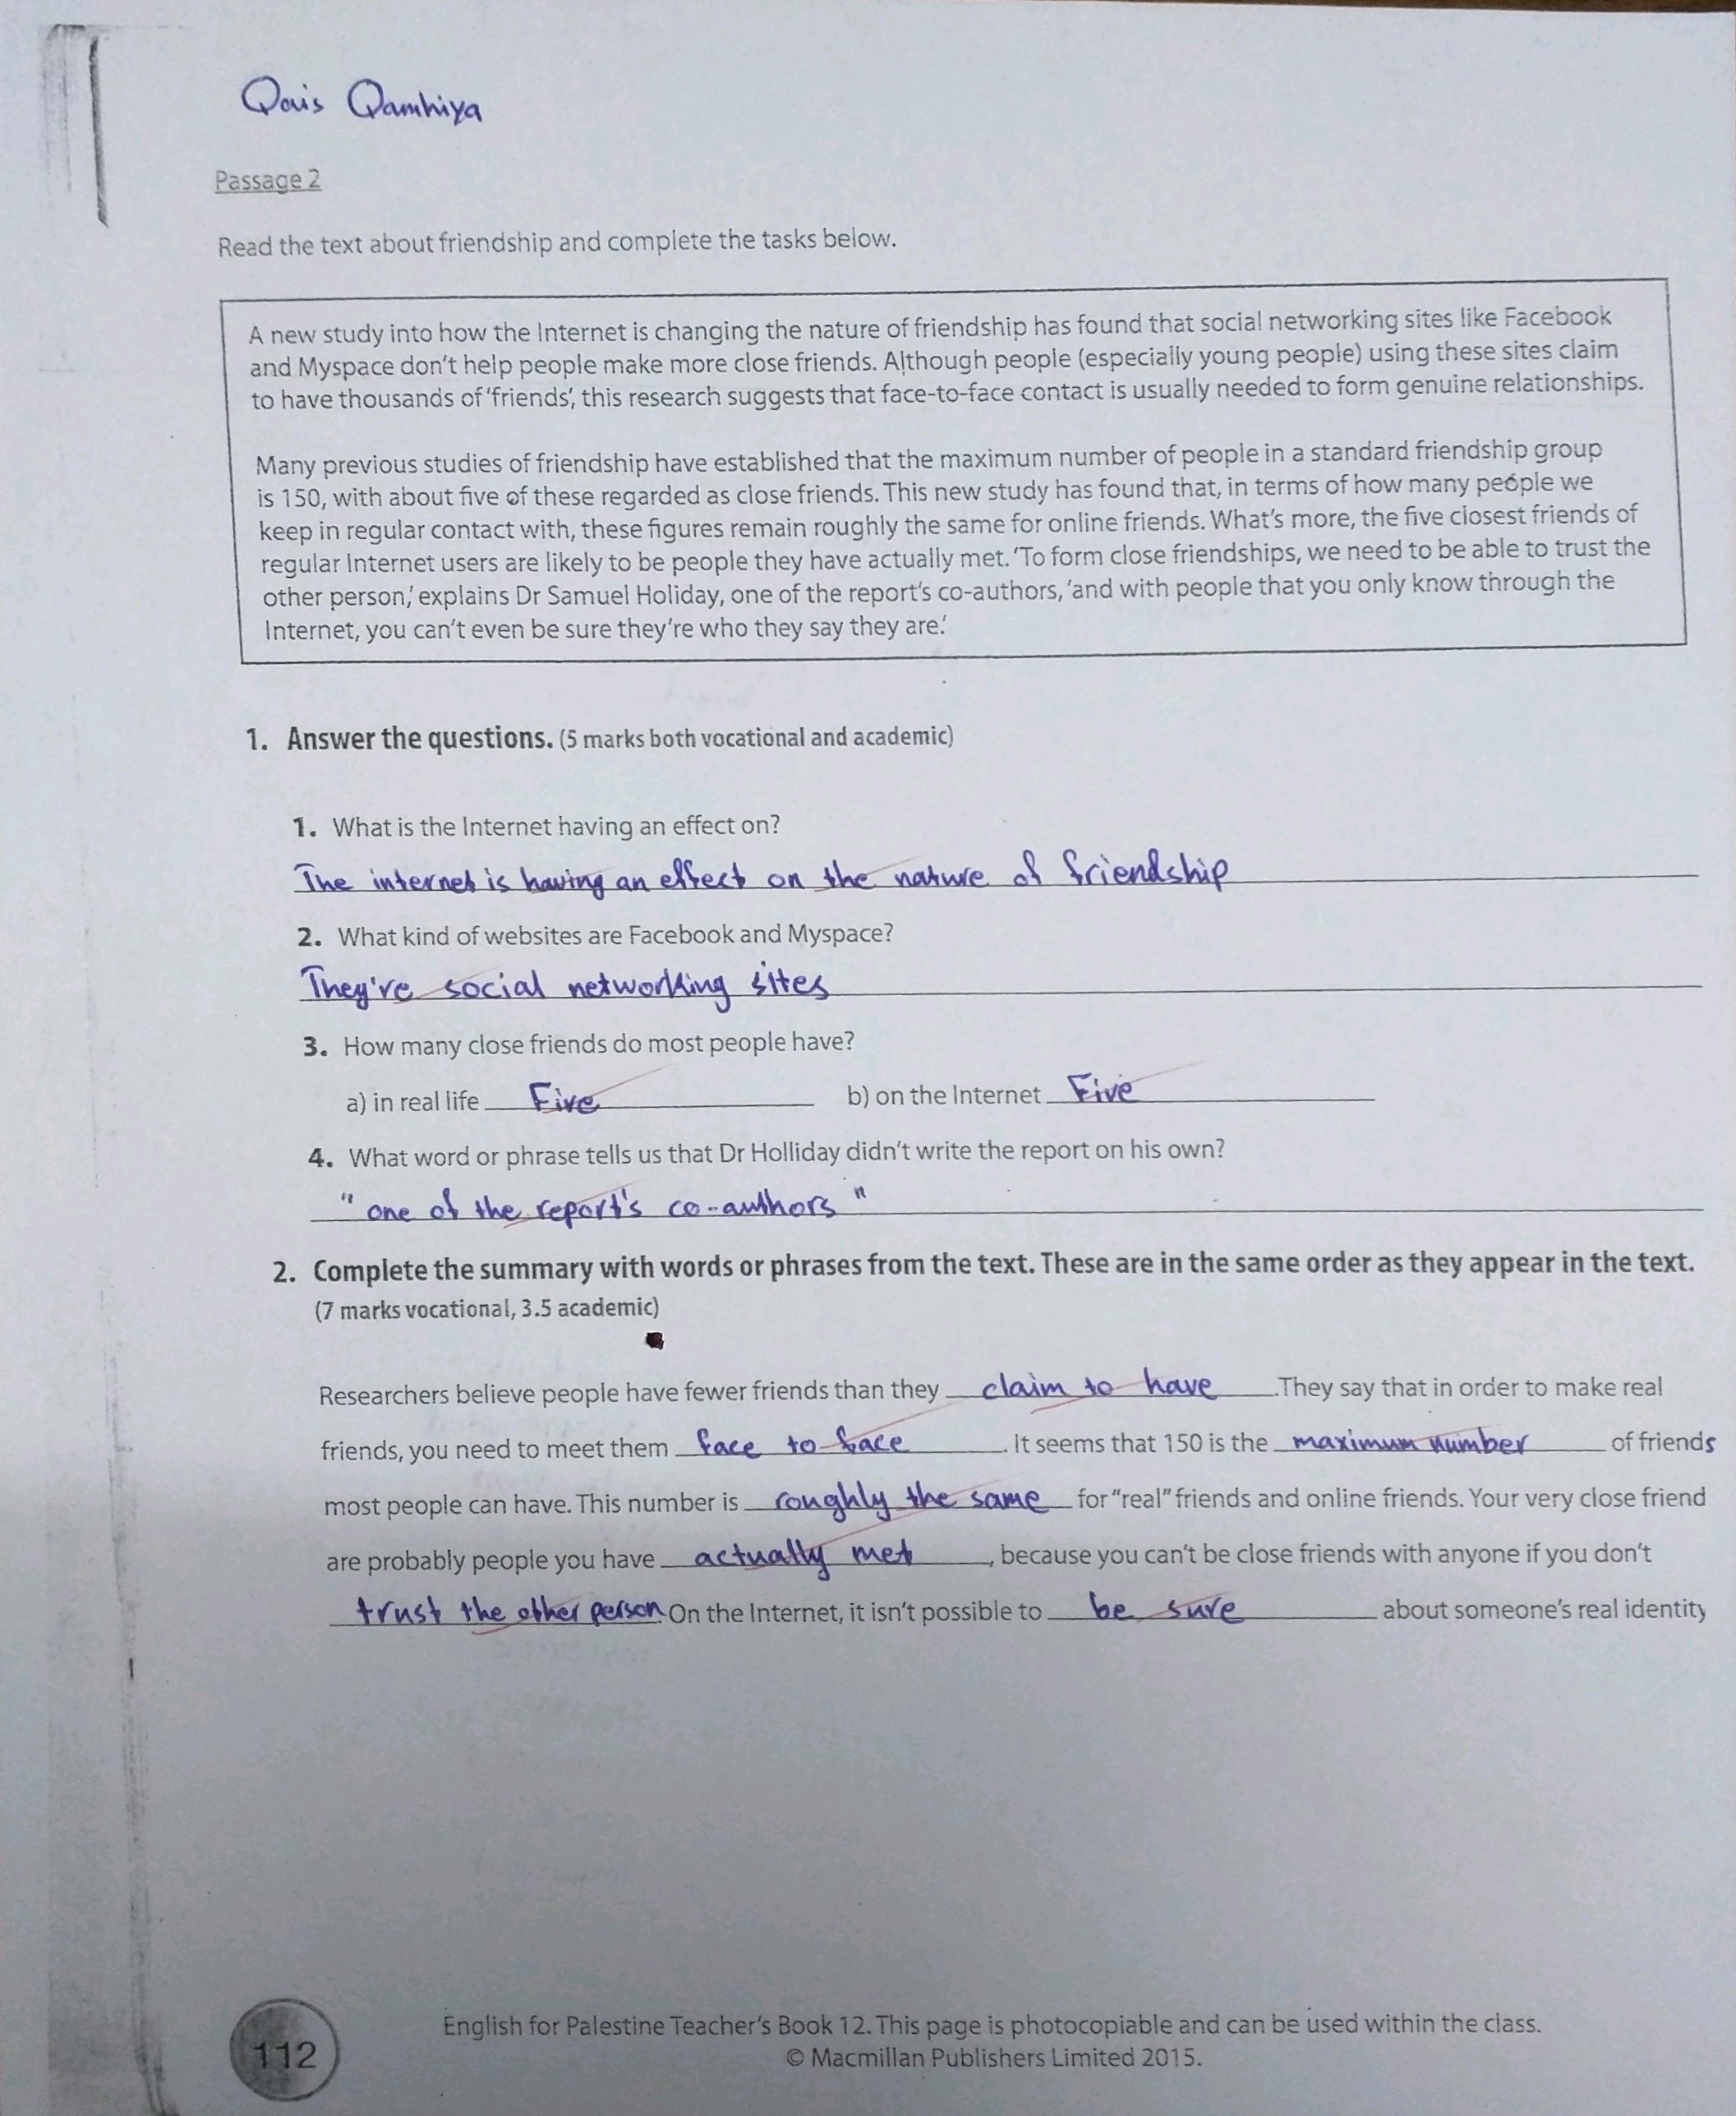 Qais Qamhiya
Passage 2
Read the text about friendship and complete the tasks below.
A new study into how the Internet is changing the nature of friendship has found that social networking sites like Facebook
and Myspace don't help people make more close friends. Although people (especially young people) using these sites claim
to have thousands of 'friends', this research suggests that face-to-face contact is usually needed to form genuine relationships.
Many previous studies of friendship have established that the maximum number of people in a standard friendship group
is 150, with about five of these regarded as close friends. This new study has found that, in terms of how many people we
keep in regular contact with, these figures remain roughly the same for online friends. What's more, the five closest friends of
regular Internet users are likely to be people they have actually met. 'To form close friendships, we need to be able to trust the
other person,' explains Dr Samuel Holiday, one of the report's co-authors, 'and with people that you only know through the
Internet, you can't even be sure they're who they say they are.'
1. Answer the questions. (5 marks both vocational and academic)
1. What is the Internet having an effect on?
The internet is having an effect on the nature of friendship
2. What kind of websites are Facebook and Myspace?
They're social networking sites
3. How many close friends do most people have?
a) in real life Five b) on the Internet Five
4. What word or phrase tells us that Dr Holliday didn't write the report on his own?
"one of the report's co-authors"
2. Complete the summary with words or phrases from the text. These are in the same order as they appear in the text.
(7 marks vocational, 3.5 academic)
Researchers believe people have fewer friends than they claim to have. They say that in order to make real
friends, you need to meet them face to face. It seems that 150 is the maximum number of friends
most people can have. This number is roughly the same for "real" friends and online friends. Your very close friend
are probably people you have actually met, because you can't be close friends with anyone if you don't
trust the other person. On the Internet, it isn't possible to be sure about someone's real identity
112
English for Palestine Teacher's Book 12. This page is photocopiable and can be used within the class.
© Macmillan Publishers Limited 2015.